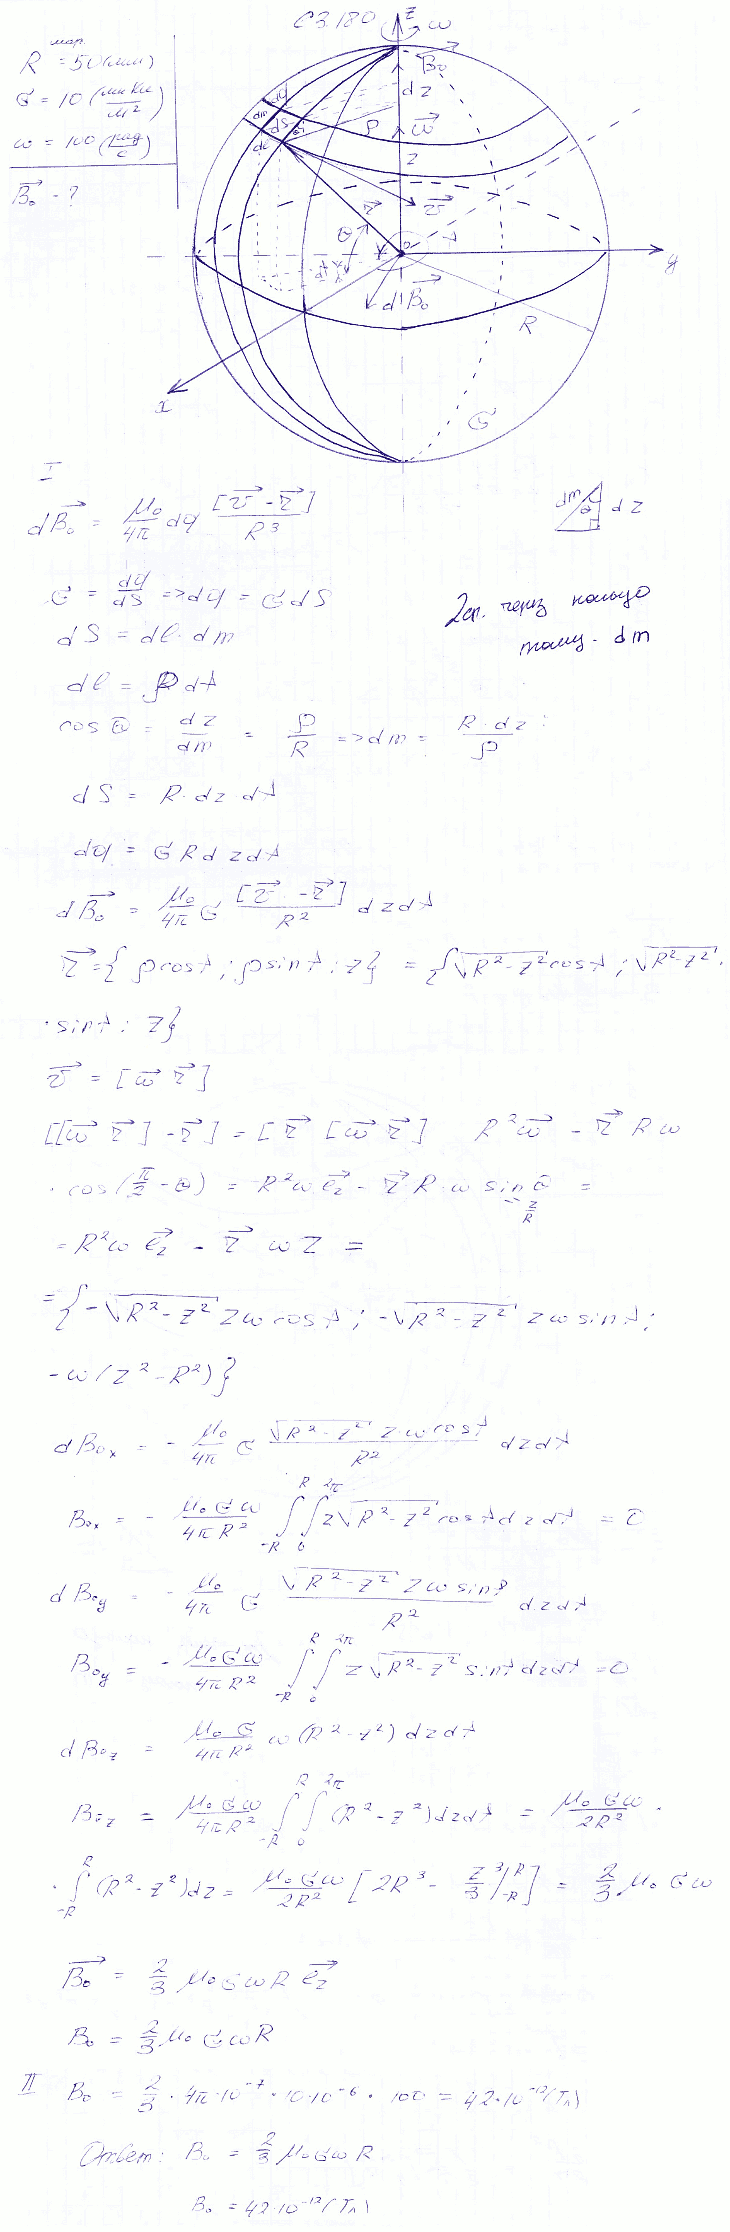 СЗ.180
R = 50 (мм)
шар.
σ = 10 (мкКл/м²)
ω = 100 (рад/с)
B⃗₀ - ?
z
ω
B⃗₀
dφ
dm
dS
dl
dz
ρ
ω⃗
z
r⃗
v⃗
θ
O
y
dB⃗₀
R
x
σ
I
dB⃗₀ = μ₀/4π dq [v⃗ -r⃗]/R³
dm θ dz
σ = dq/dS => dq = σdS
2сп. через кольцо
dS = dl·dm
толщ. dm
dl = ρdλ
cos θ = dz/dm = ρ/R => dm = R·dz/ρ
dS = R·dz dλ
dq = σRdzdλ
dB⃗₀ = μ₀/4π σ [v⃗ -r⃗]/R² dzdλ
r⃗ = {ρcosλ; ρsinλ; z} = {√R²-z² cosλ; √R²-z² ·
·sinλ; z}
v⃗ = [ω⃗ r⃗]
[[ω⃗ r⃗] -r⃗] = [r⃗ [ω⃗ r⃗]] R²ω⃗ - r⃗ Rω
·cos(π/2 - θ) = R²ω e⃗z - r⃗ R·ω sin θ =
z/R
= R²ω e⃗z - r⃗ ωz =
= {-√R²-z² zω cosλ; -√R²-z² zω sinλ;
-ω(z²-R²)}
dB₀x = - μ₀/4π σ √R²-z² z·ω cosλ/R² dzdλ
B₀x = - μ₀σω/4πR² ∫₋R^R ∫₀^2π z√R²-z² cosλdzdλ = 0
dB₀y = - μ₀/4π σ √R²-z² zω sinλ/R² dzdλ
B₀y = - μ₀σω/4πR² ∫₋R^R ∫₀^2π z√R²-z² sinλdzdλ = 0
dB₀z = μ₀σ/4πR² ω(R²-z²)dzdλ
B₀z = μ₀σω/4πR² ∫₋R^R ∫₀^2π (R²-z²)dzdλ = μ₀σω/2R² ·
· ∫₋R^R (R²-z²)dz = μ₀σω/2R² [2R³ - z³/3 |₋R^R] = 2/3 μ₀σω
B⃗₀ = 2/3 μ₀σωR e⃗z
B₀ = 2/3 μ₀σωR
II B₀ = 2/3 · 4π·10⁻⁷ · 10·10⁻⁶ · 100 = 42·10⁻¹²(Тл)
Ответ: B₀ = 2/3 μ₀σωR
B₀ = 42·10⁻¹²(Тл)